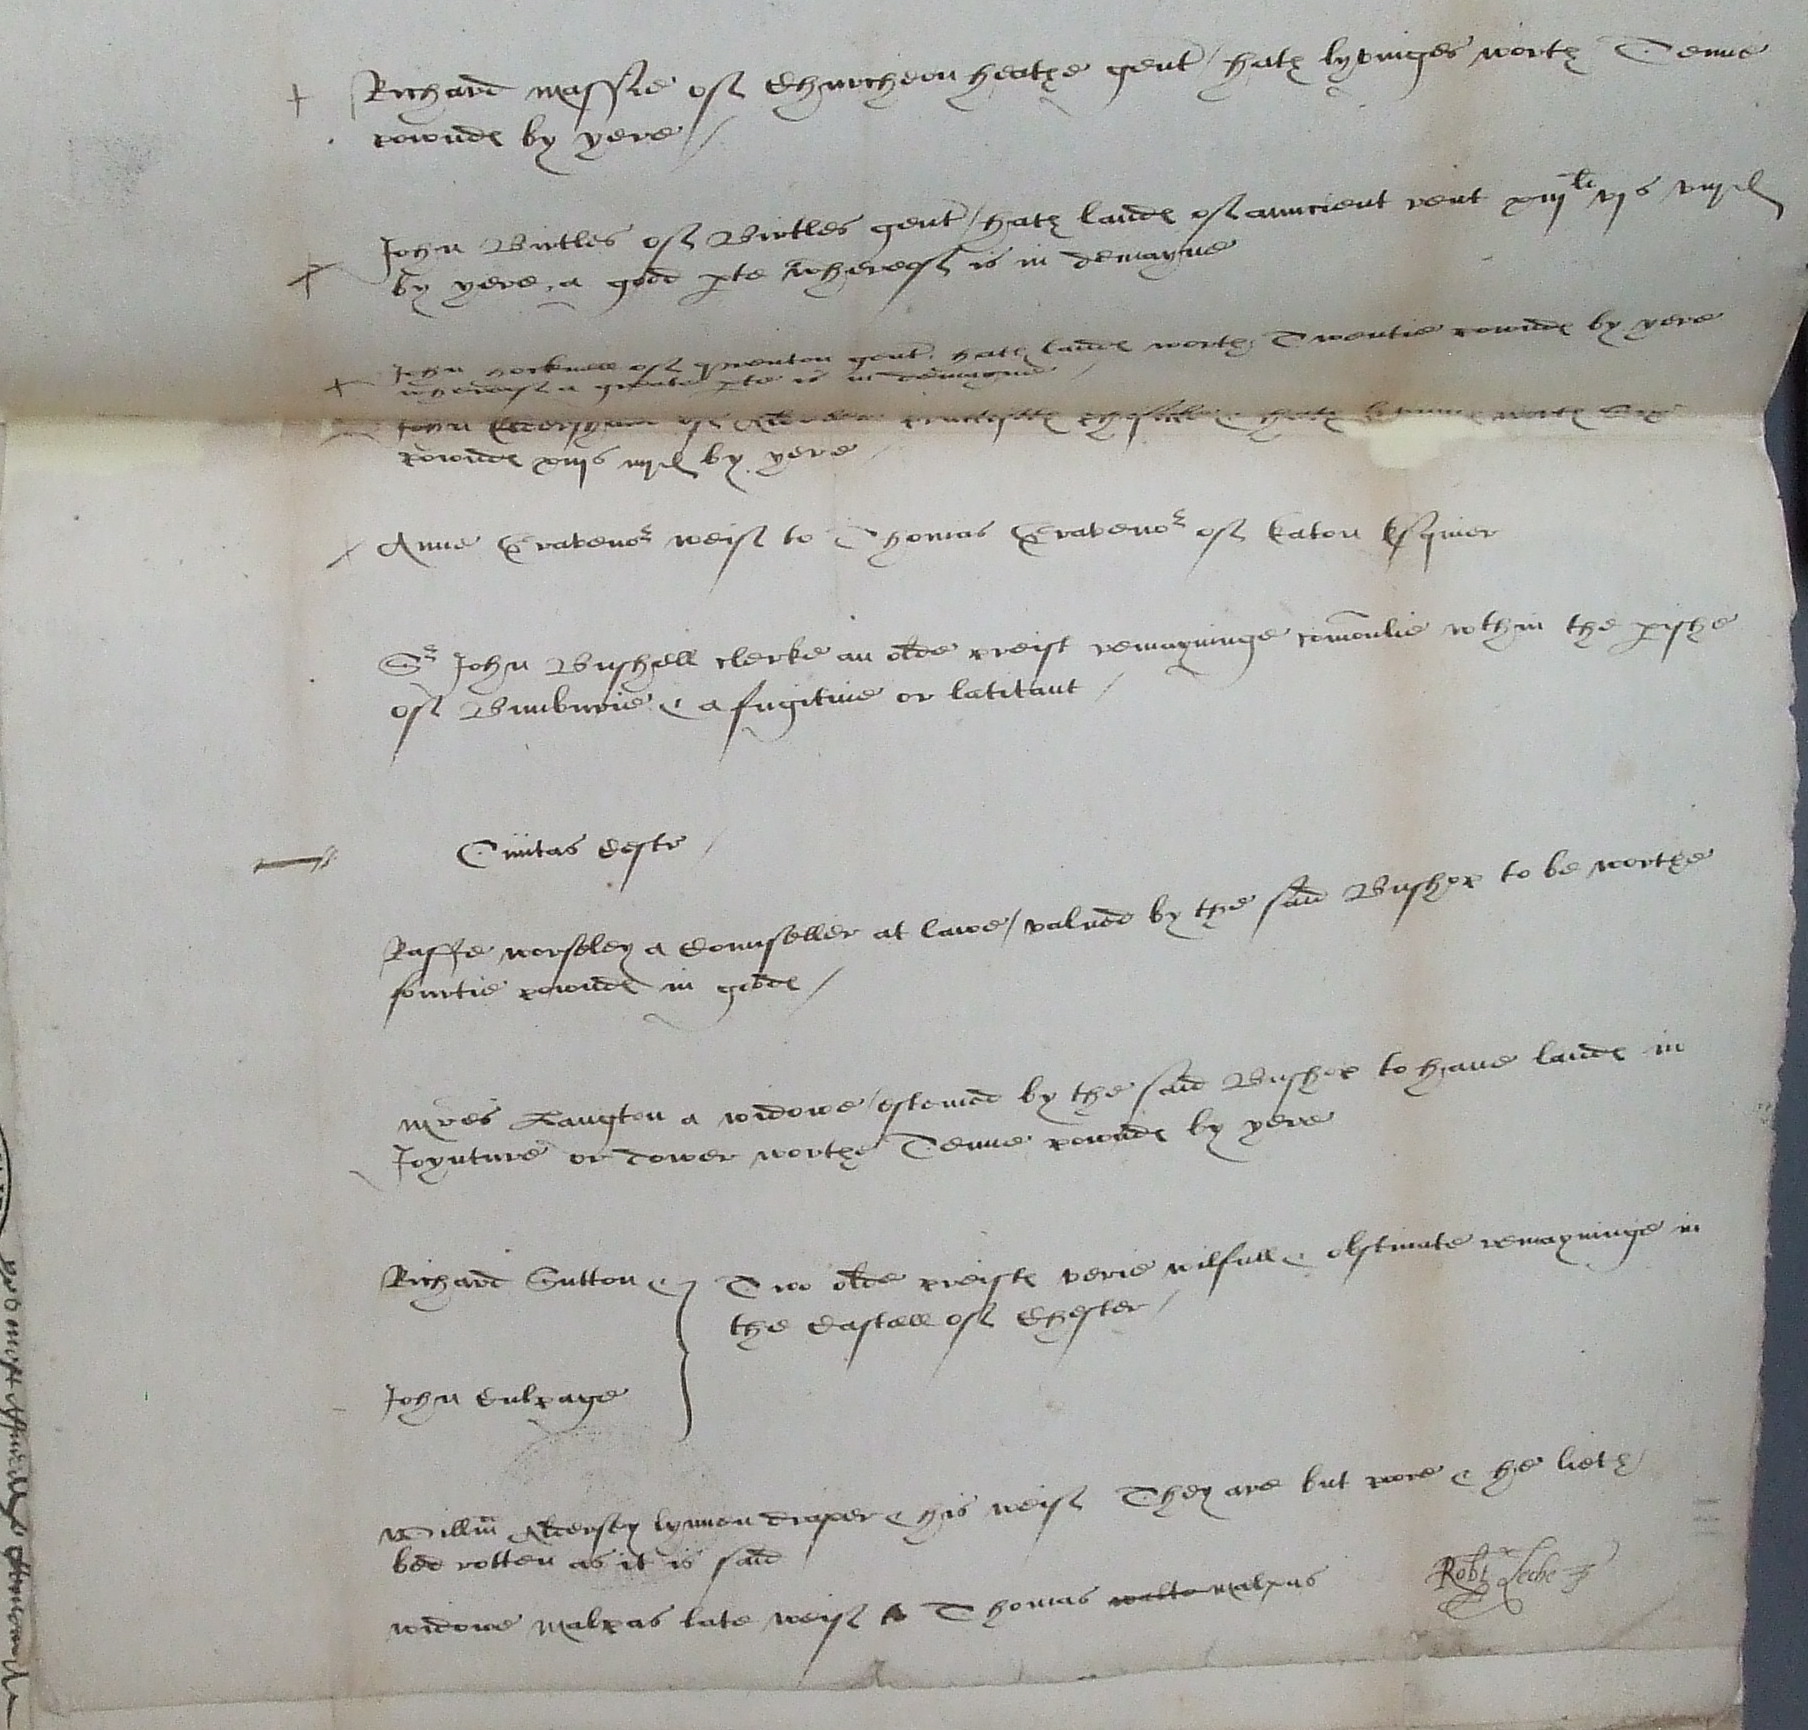 Richard Massie of Churcheon heathe gent / hath lyvinges worth Tenne
pownds by yere /
John Birtles of Birtles gent / hath lands of auncient rent xiijli vjs viijd
by yere, a good pte whereof is in demayne
John Hocknell of Prenton gent. hath lands worth Twentie pownds by yere
whereof a greate pte is in demayne /
John
pownds xiijs iiijd by yere /
Anne Gravenor weif to Thomas Gravenor of Eaton Esquier
Sr John Bushell clerke an olde preist remayninge comonlie wthin the pishe
of Bunburie & a fugitive or latitant /
Civitas Cestr /
Raffe Worseley a Counseller at lawe / valued by the said Bushop to be worthe
fourtie pownds in goods /
Mres Langton a widowe / estemed by the said Bushop to have lands in
Joynture or dower worthe Tenne pownds by yere
Richard Sutton & Two olde preists verie wilfull & obstinate remayninge in
the Castell of Chester /
John Culpage
Willm Aldersey lynnen draper & his weif They are but pore & he lieth
bed rotten as it is said
widowe Malpas late weif Thomas Malpas
Robt Leche